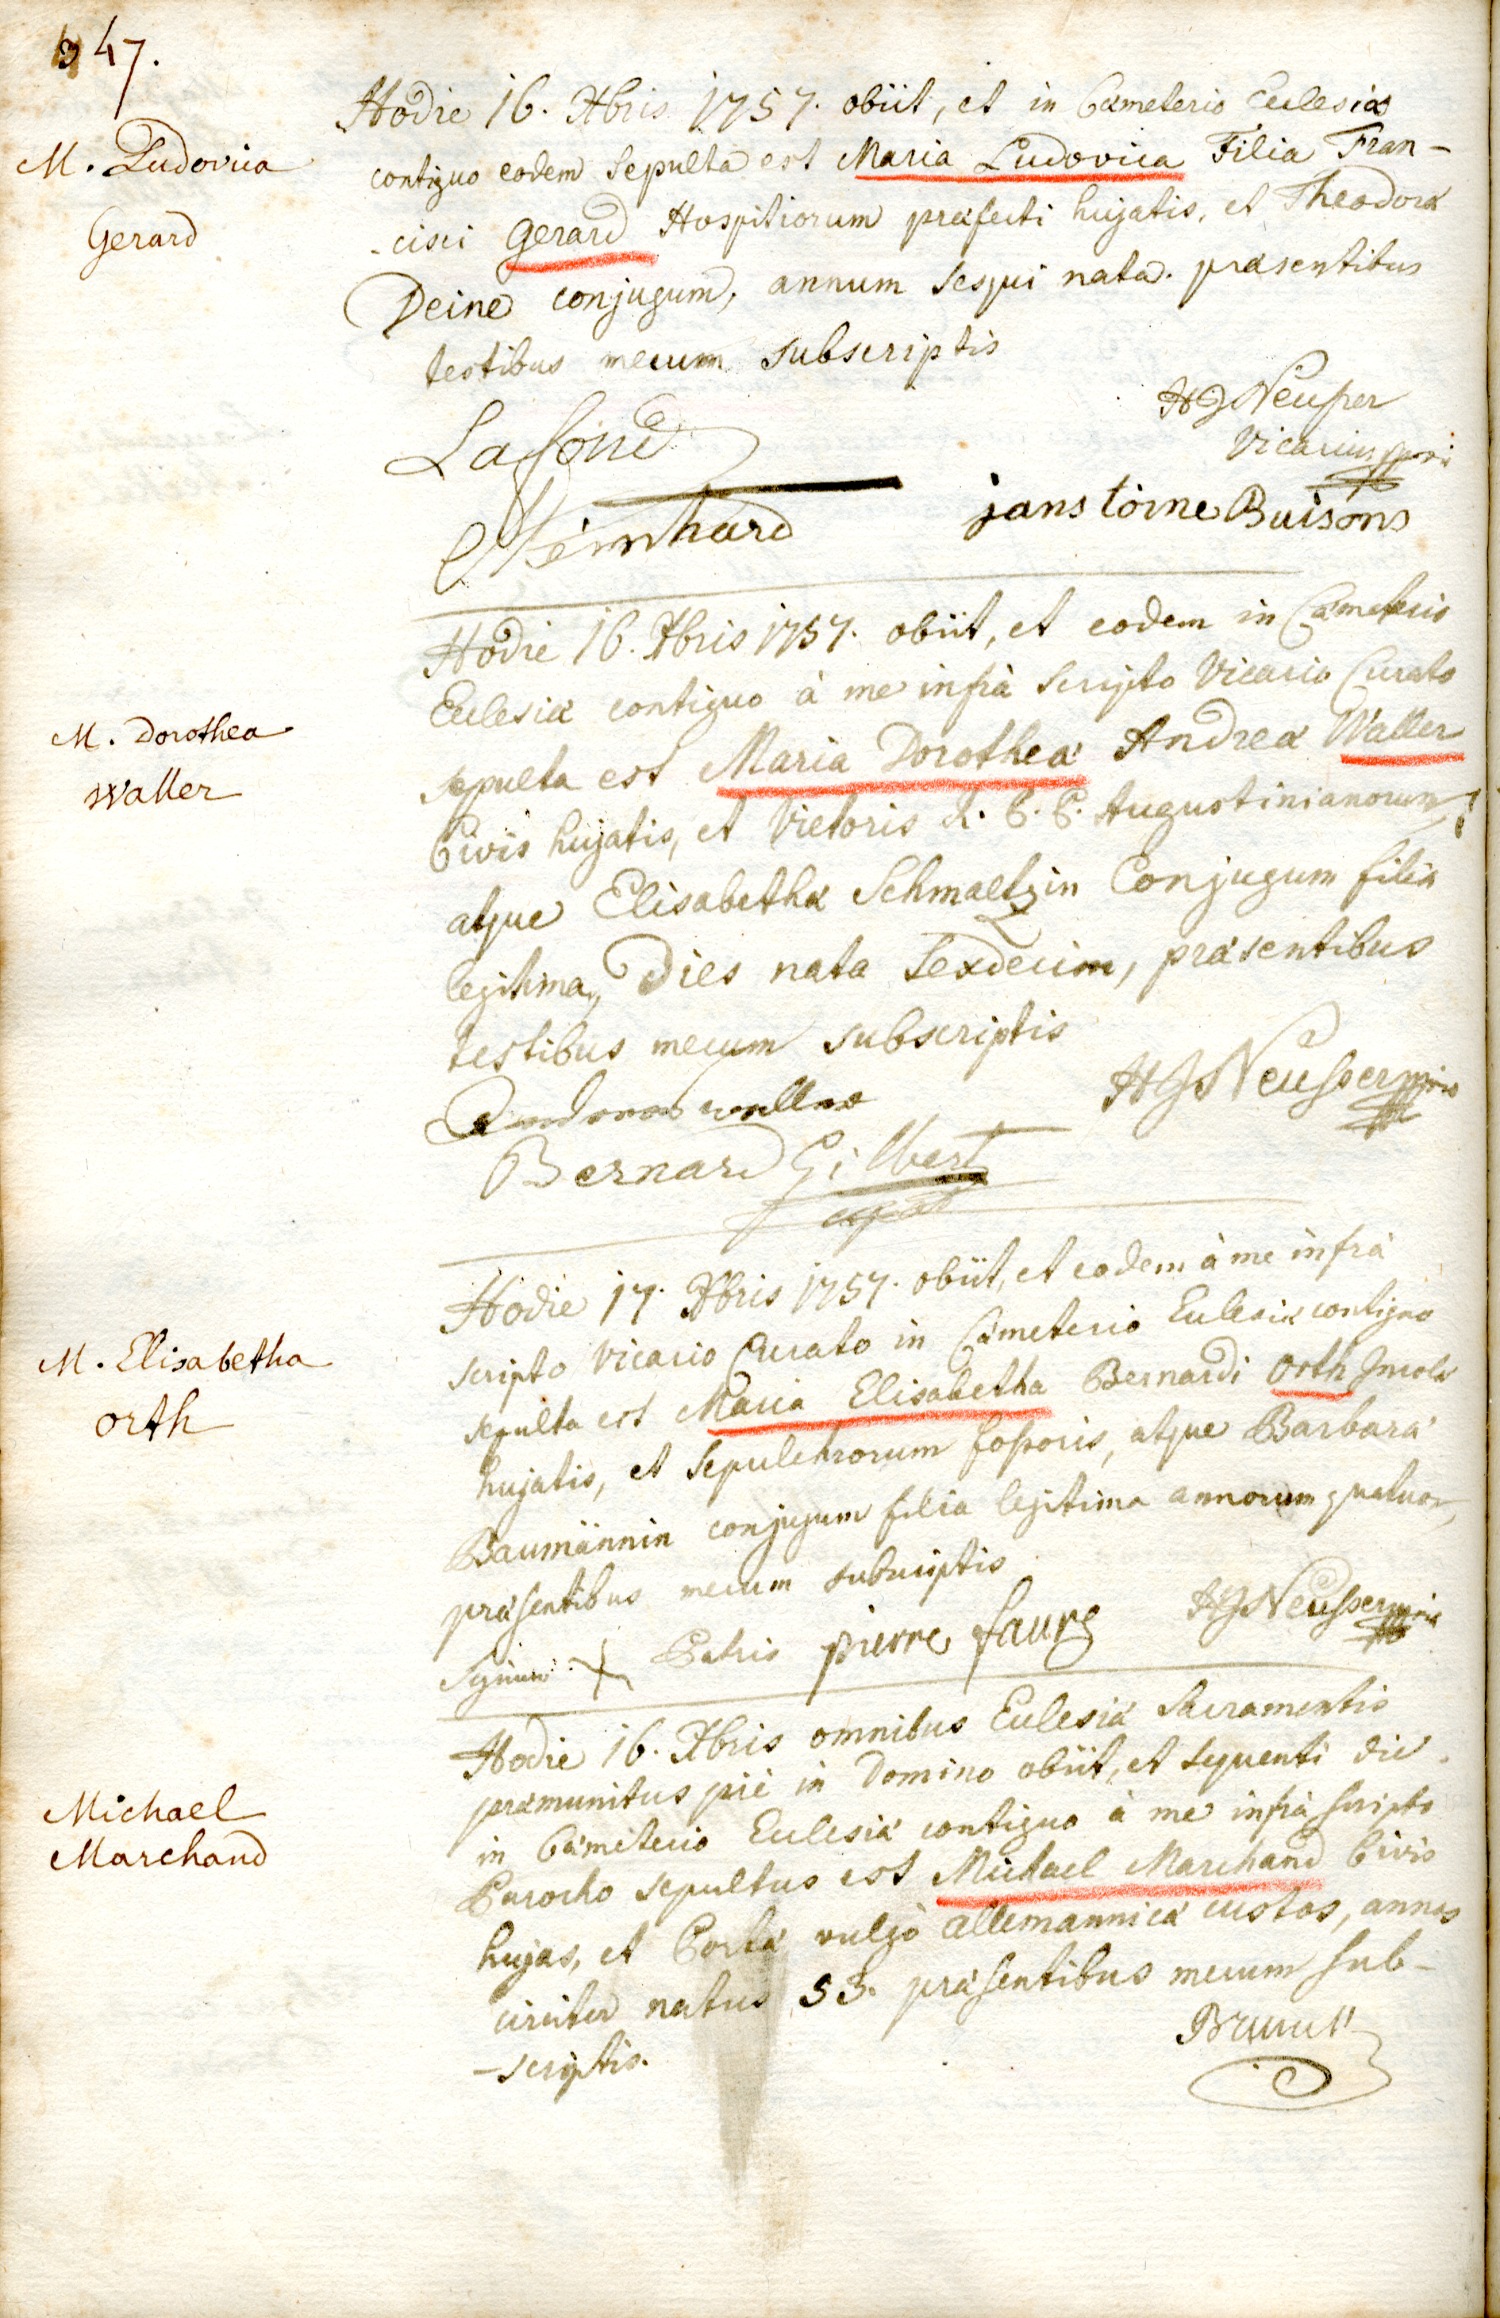 347.
M. Ludovica
Gerard
Hodie 16. Xbris 1757. obiit, et in Cæmeterio Ecclesiæ
contiguo eodem sepulta est Maria Ludovica Filia Fran-
-cisci Gerard Hospitiorum præfecti hujatis, et Theodoræ
Deine conjugum, annum sesqui nata. præsentibus
testibus mecum subscriptis
HJNeusser
Vicarius mpria
Lafond
jans törne Buisons
Reinhard
M. Dorothea
Waller
Hodie 16. Xbris 1757. obiit, et eodem in Cæmeterio
Ecclesiæ contiguo à me infrà scripto Vicario Curato
sepulta est Maria Dorothea Andreæ Waller
Civis hujatis, et Vietoris R. P. P. Augustinianorum,
atque Elisabethæ Schmaeltzin Conjugum filia
legitima, Dies nata sexdecim, præsentibus
testibus mecum subscriptis
HJNeusser mpria
Andreas waller
Bernard Gilbert
M. Elisabetha
orth
Hodie 17. Xbris 1757. obiit, et eodem à me infrà
scripto Vicario Curato in Cæmeterio Ecclesiæ contiguo
sepulta est Maria Elisabetha Bernardi Orth Incolæ
hujatis, et sepulchrorum fossoris, atque Barbaræ
Baumännin conjugum filia legitima annorum quatuor,
præsentibus mecum subscriptis
HJNeusser mpria
Signum X Patris pierre faure
Michael
Marchand
Hodie 16. Xbris omnibus Ecclesiæ Sacramentis
præmunitus piè in Domino obiit, et sequenti die
in Cæmeterio Ecclesiæ contiguo à me infrà scripto
Parocho sepultus est Michael Marchand Civis
hujas, et Portæ vulgò allemannicæ custos, annos
circiter natus 53. præsentibus mecum sub-
-scriptis.
Brunck